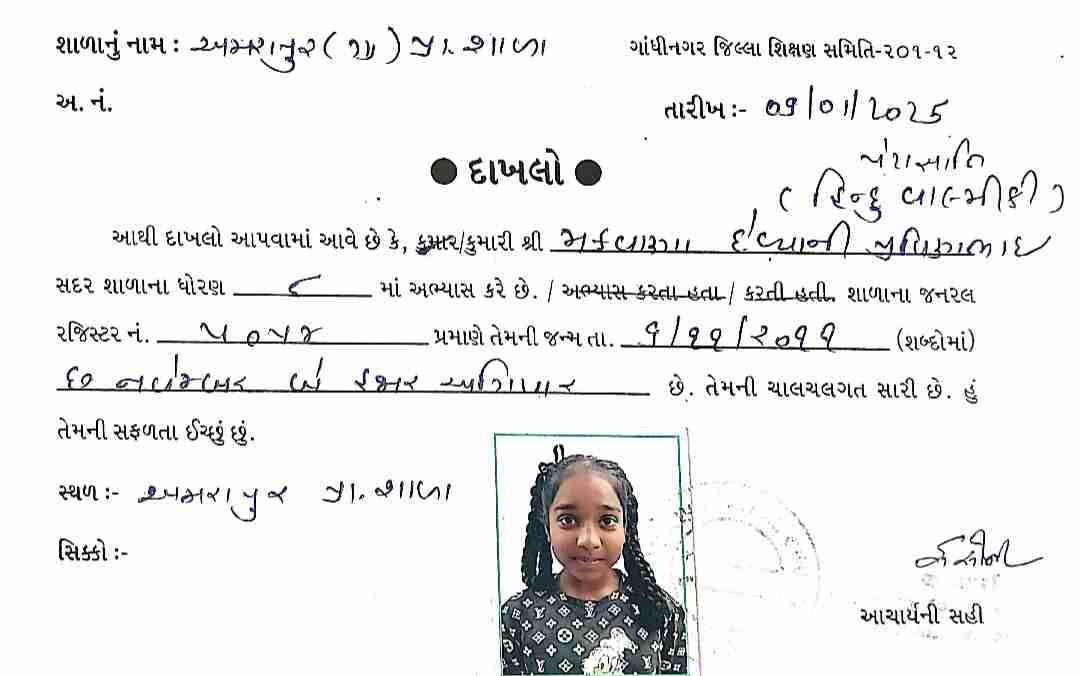 શાળાનું નામ : અમરાપુર ( ગ્રા ) પ્રા. શાળા ગાંધીનગર જિલ્લા શિક્ષણ સમિતિ-૨૦૧-૧૨
અ. નં. તારીખ :- 09/01/2025
● દાખલો ●
પેટાજ્ઞાતિ
( હિન્દુ વાલ્મીકી )
આથી દાખલો આપવામાં આવે છે કે, કુમાર/કુમારી શ્રી મકવાણા દિવ્યાની પ્રવિણભાઇ
સદર શાળાના ધોરણ ૮ માં અભ્યાસ કરે છે. / અભ્યાસ કરતા હતા / કરતી હતી. શાળાના જનરલ
રજિસ્ટર નં. ૫૦૫૪ પ્રમાણે તેમની જન્મ તા. ૬/૧૧/૨૦૧૧ (શબ્દોમાં)
છ નવેમ્બર બે હજાર અગિયાર છે. તેમની ચાલચલગત સારી છે. હું
તેમની સફળતા ઈચ્છું છું.
સ્થળ :- અમરાપુર પ્રા. શાળા
સિક્કો :-
આચાર્યની સહી